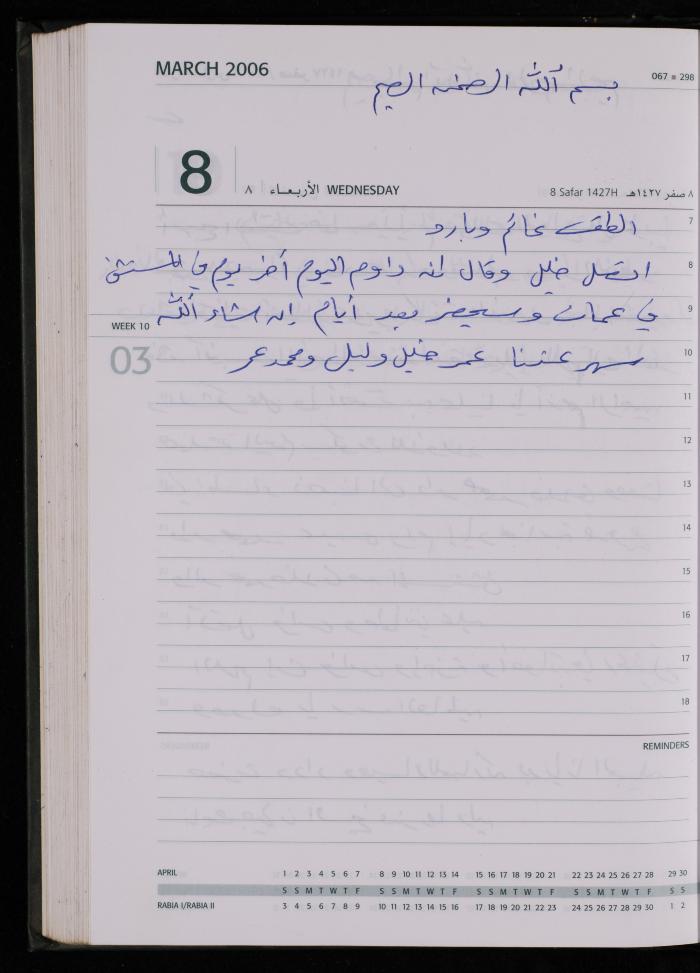 MARCH 2006
067 ▪ 298
بسم الله الرحمن الرحيم
8
٨ الأربعاء WEDNESDAY
8 Safar 1427H ٨ صفر ١٤٢٧هـ
7
الطقس غائم وبارد
8
اتصل خليل وقال انه داوم اليوم أخر يوم في المستشفى
9
في عمان وسيحضر بعد أيام إن شاء الله
WEEK 10
03
10
سهر عندنا عمر خليل وليل ومحمد عمر
11
12
13
14
15
16
17
18
REMINDERS
APRIL 1 2 3 4 5 6 7 8 9 10 11 12 13 14 15 16 17 18 19 20 21 22 23 24 25 26 27 28 29 30
S S M T W T F S S M T W T F S S M T W T F S S M T W T F S S
RABIA I/RABIA II 3 4 5 6 7 8 9 10 11 12 13 14 15 16 17 18 19 20 21 22 23 24 25 26 27 28 29 30 1 2